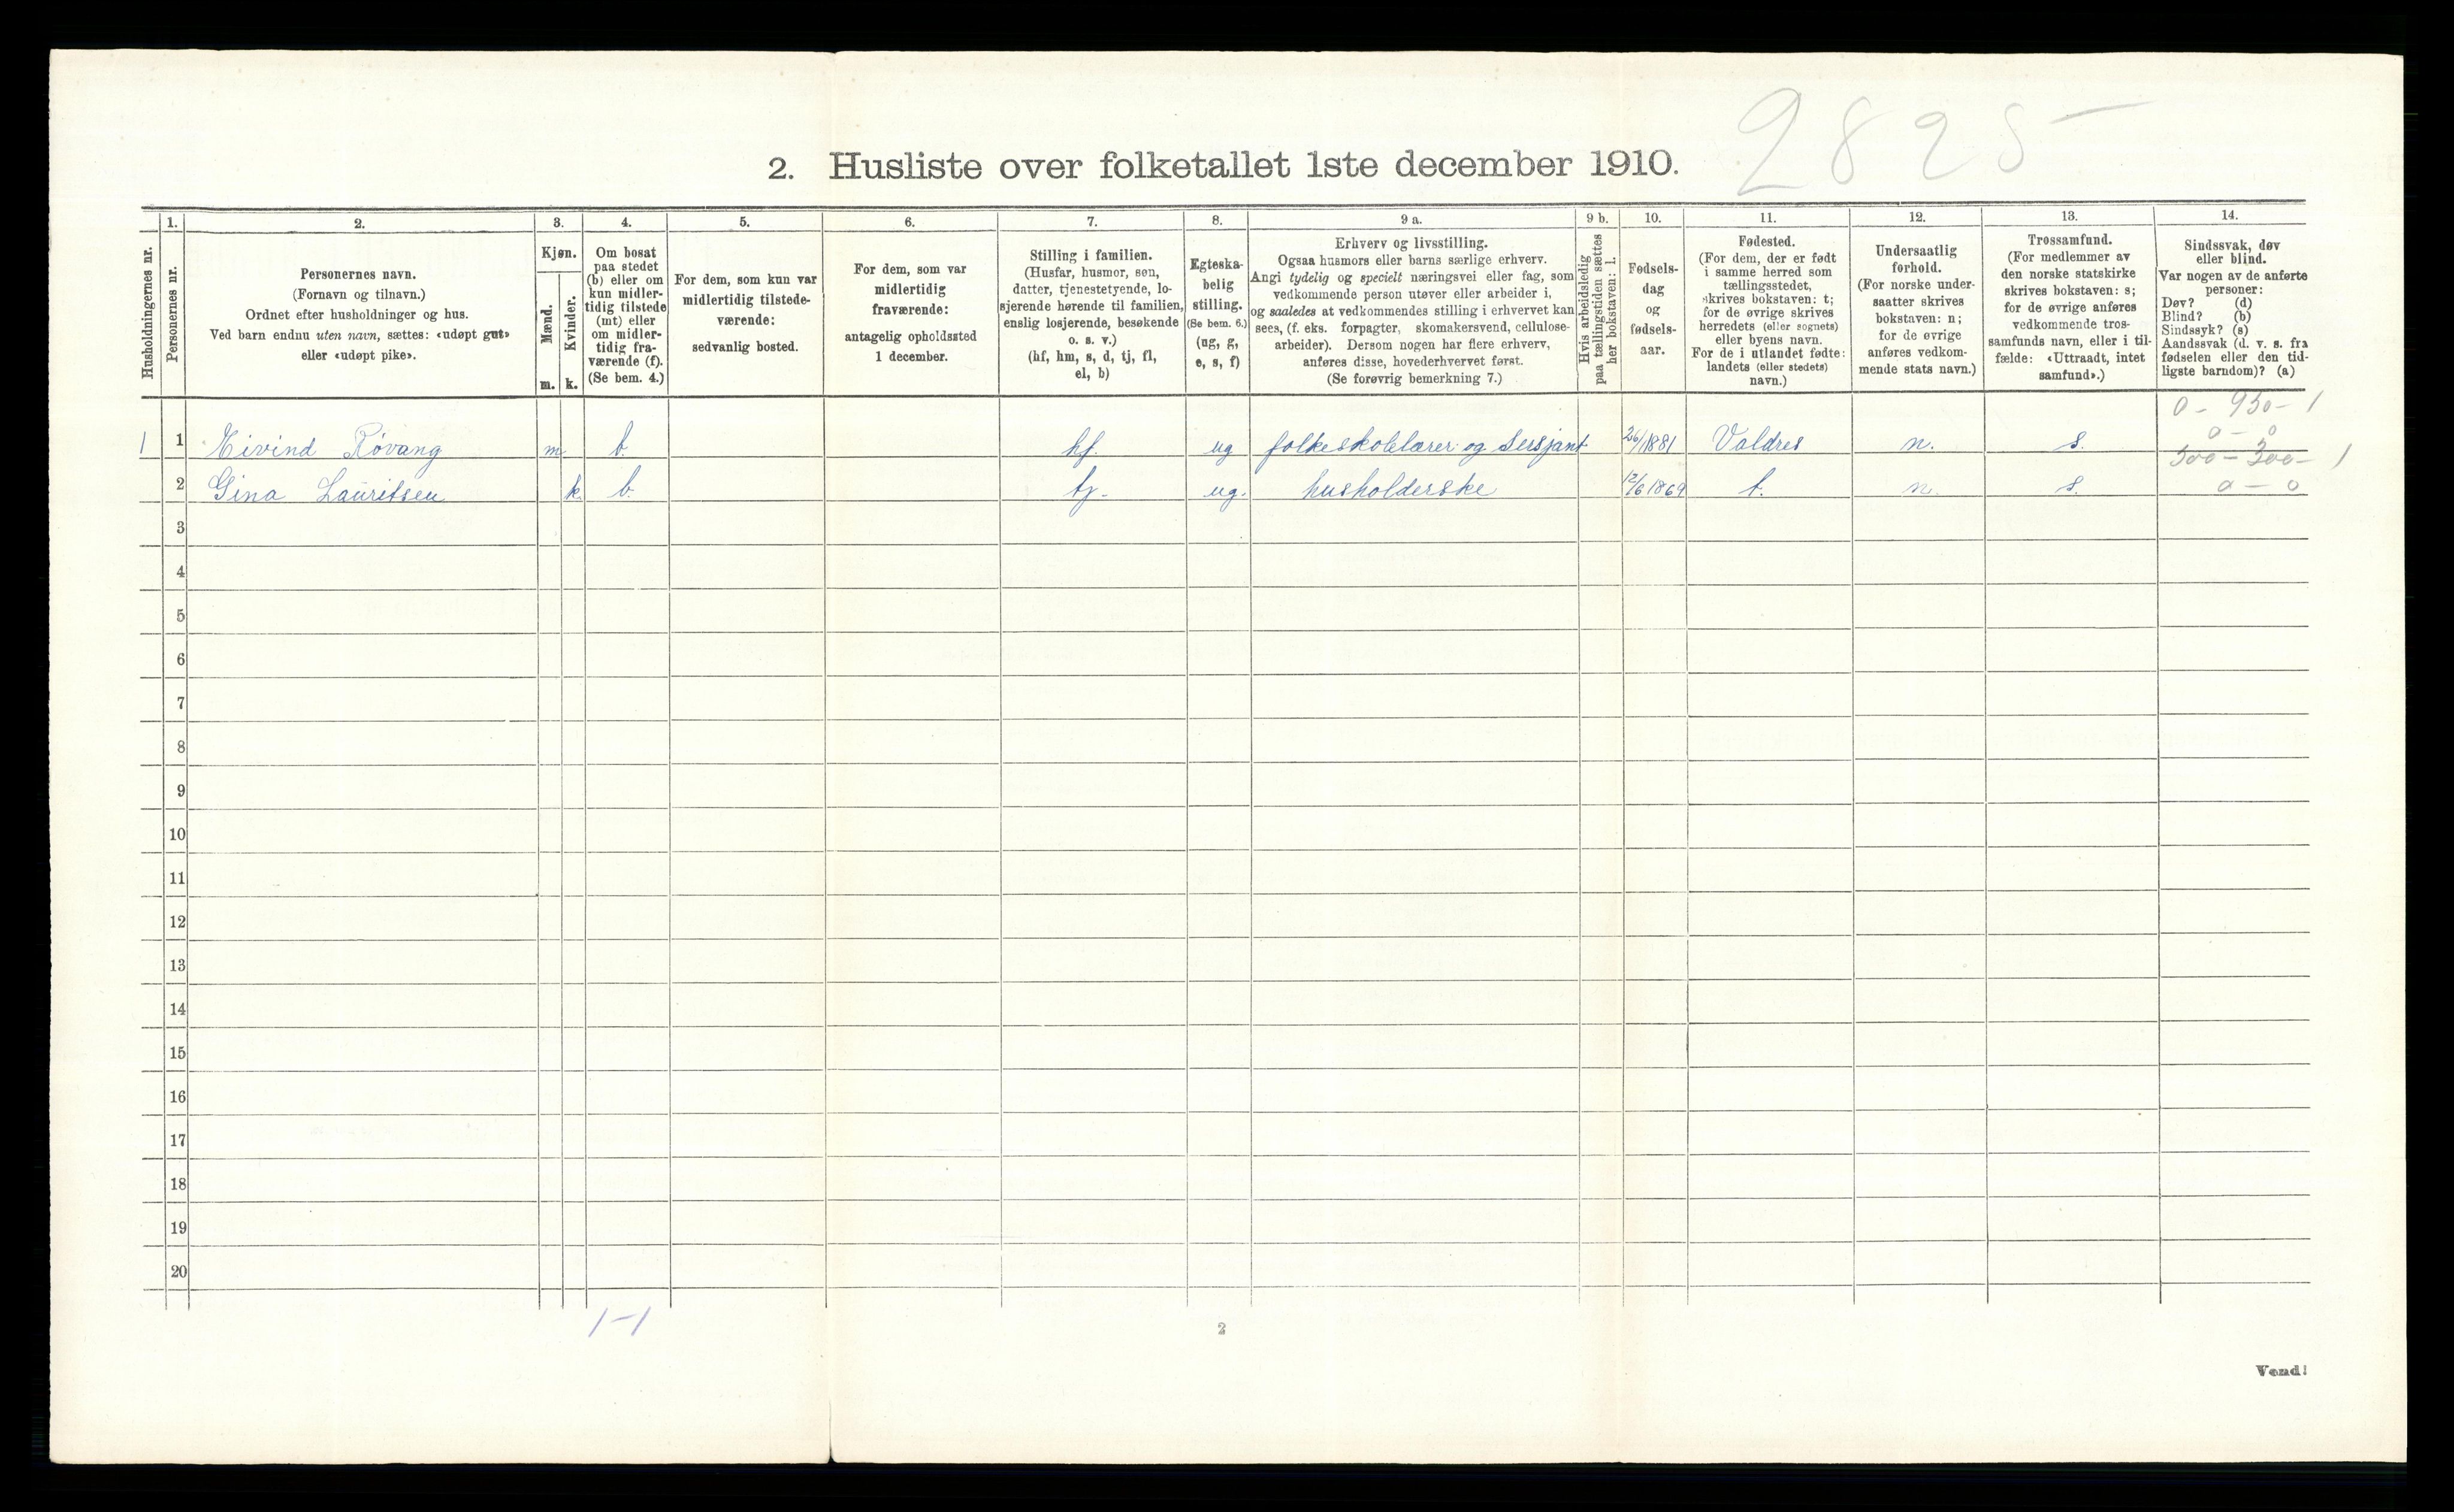 2825 –
2. Husliste over folketallet 1ste december 1910.
Husholdningernes nr.
1.
Personernes nr.
2.
Personernes navn.
(Fornavn og tilnavn.)
Ordnet efter husholdninger og hus.
Ved barn endnu uten navn, sættes: «udøpt gut»
eller «udøpt pike».
3.
Kjøn.
Mænd.
m.
Kvinder.
k.
4.
Om bosat
paa stedet
(b) eller om
kun midler-
tidig tilstede
(mt) eller
om midler-
tidig fra-
værende (f).
(Se bem. 4.)
5.
For dem, som kun var
midlertidig tilstede-
værende:
sedvanlig bosted.
6.
For dem, som var
midlertidig
fraværende:
antagelig opholdssted
1 december.
7.
Stilling i familien.
(Husfar, husmor, søn,
datter, tjenestetyende, lo-
sjerende hørende til familien,
enslig losjerende, besøkende
o. s. v.)
(hf, hm, s, d, tj, fl,
el, b)
8.
Egteska-
belig
stilling.
(Se bem. 6.)
(ug, g,
e, s, f)
9 a.
Erhverv og livsstilling.
Ogsaa husmors eller barns særlige erhverv.
Angi tydelig og specielt næringsvei eller fag, som
vedkommende person utøver eller arbeider i,
og saaledes at vedkommendes stilling i erhvervet kan
sees, (f. eks. forpagter, skomakersvend, cellulose-
arbeider). Dersom nogen har flere erhverv,
anføres disse, hovederhvervet først.
(Se forøvrig bemerkning 7.)
9 b.
Hvis arbeidsledig
paa tællingstiden sættes
her bokstaven: l.
10.
Fødsels-
dag
og
fødsels-
aar.
11.
Fødested.
(For dem, der er født
i samme herred som
tællingsstedet,
skrives bokstaven: t;
for de øvrige skrives
herredets (eller sognets)
eller byens navn.
For de i utlandet fødte:
landets (eller stedets)
navn.)
12.
Undersaatlig
forhold.
(For norske under-
saatter skrives
bokstaven: n;
for de øvrige
anføres vedkom-
mende stats navn.)
13.
Trossamfund.
(For medlemmer av
den norske statskirke
skrives bokstaven: s;
for de øvrige anføres
vedkommende tros-
samfunds navn, eller i til-
fælde: «Uttraadt, intet
samfund».)
14.
Sindssvak, døv
eller blind.
Var nogen av de anførte
personer:
Døv? (d)
Blind? (b)
Sindssyk? (s)
Aandssvak (d. v. s. fra
fødselen eller den tid-
ligste barndom)? (a)
0 – 950 – 1
0 – 0
1 1 Eivind Røvang m b. hf. ug folkeskolelærer og Sersjant 26/1 1881 Valdres n. s.
300 – 300 – 1
2 Gina Lauritsen k. b. tj. ug. husholderske 12/6 1869 t. n. s. 0 – 0
3
4
5
6
7
8
9
10
11
12
13
14
15
16
17
18
19
20
1–1
2
Vend!